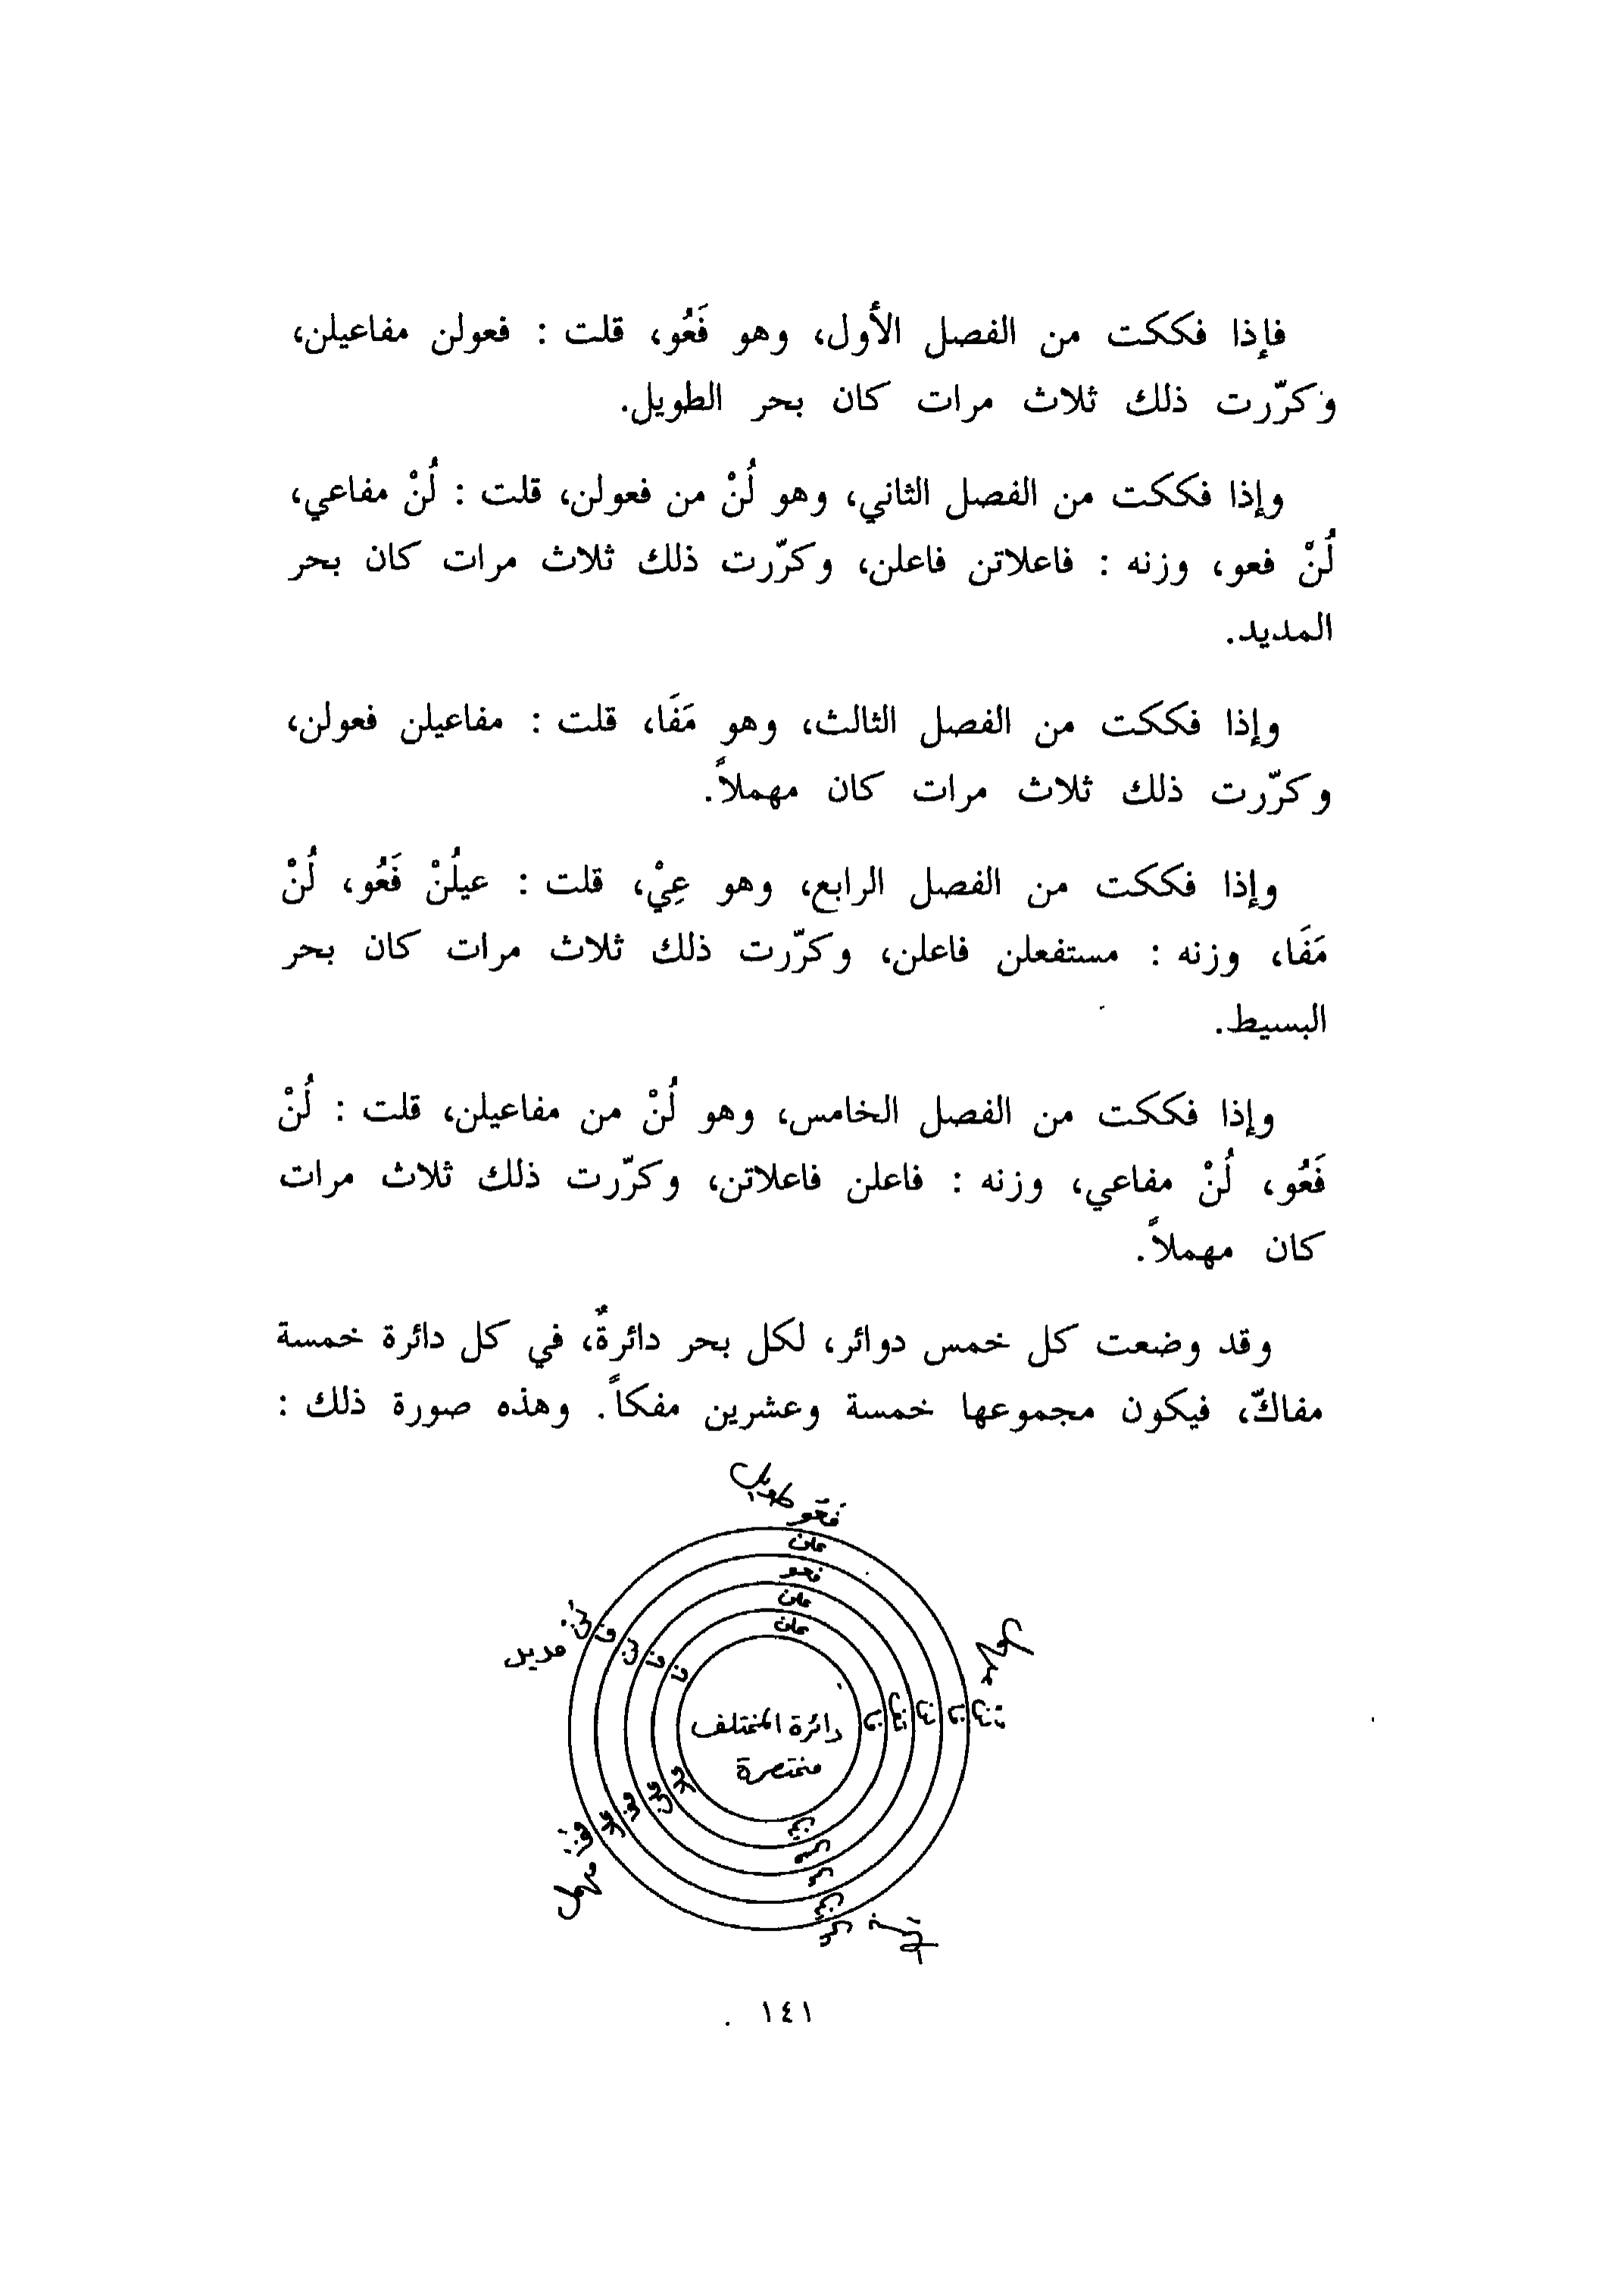 فإذا فككت من الفصل الأول، وهو فَعُو، قلت : فعولن مفاعيلن،
وكرّرت ذلك ثلاث مرات كان بحر الطويل.
وإذا فككت من الفصل الثاني، وهو لُنْ من فعولن، قلت : لُنْ مفاعي،
لُنْ فعو، وزنه : فاعلاتن فاعلن، وكرّرت ذلك ثلاث مرات كان بحر
المديد.
وإذا فككت من الفصل الثالث، وهو مَفَا، قلت : مفاعيلن فعولن،
وكرّرت ذلك ثلاث مرات كان مهملاً.
وإذا فككت من الفصل الرابع، وهو عِيْ، قلت : عيلُنْ فَعُو، لُنْ
مَفَا، وزنه : مستفعلن فاعلن، وكرّرت ذلك ثلاث مرات كان بحر
البسيط.
وإذا فككت من الفصل الخامس، وهو لُنْ من مفاعيلن، قلت : لُنْ
فَعُو، لُنْ مفاعي، وزنه : فاعلن فاعلاتن، وكرّرت ذلك ثلاث مرات
كان مهملاً.
وقد وضعت كل خمس دوائر، لكل بحر دائرةٌ، في كل دائرة خمسة
مفاكّ، فيكون مجموعها خمسة وعشرين مفكاً. وهذه صورة ذلك :
طويل
فَعُو
علن
فعو
علن
علن
لُنْ فا لن فا فا
مديد
دائرة المختلف
مختصرة
مهمل
١٤١